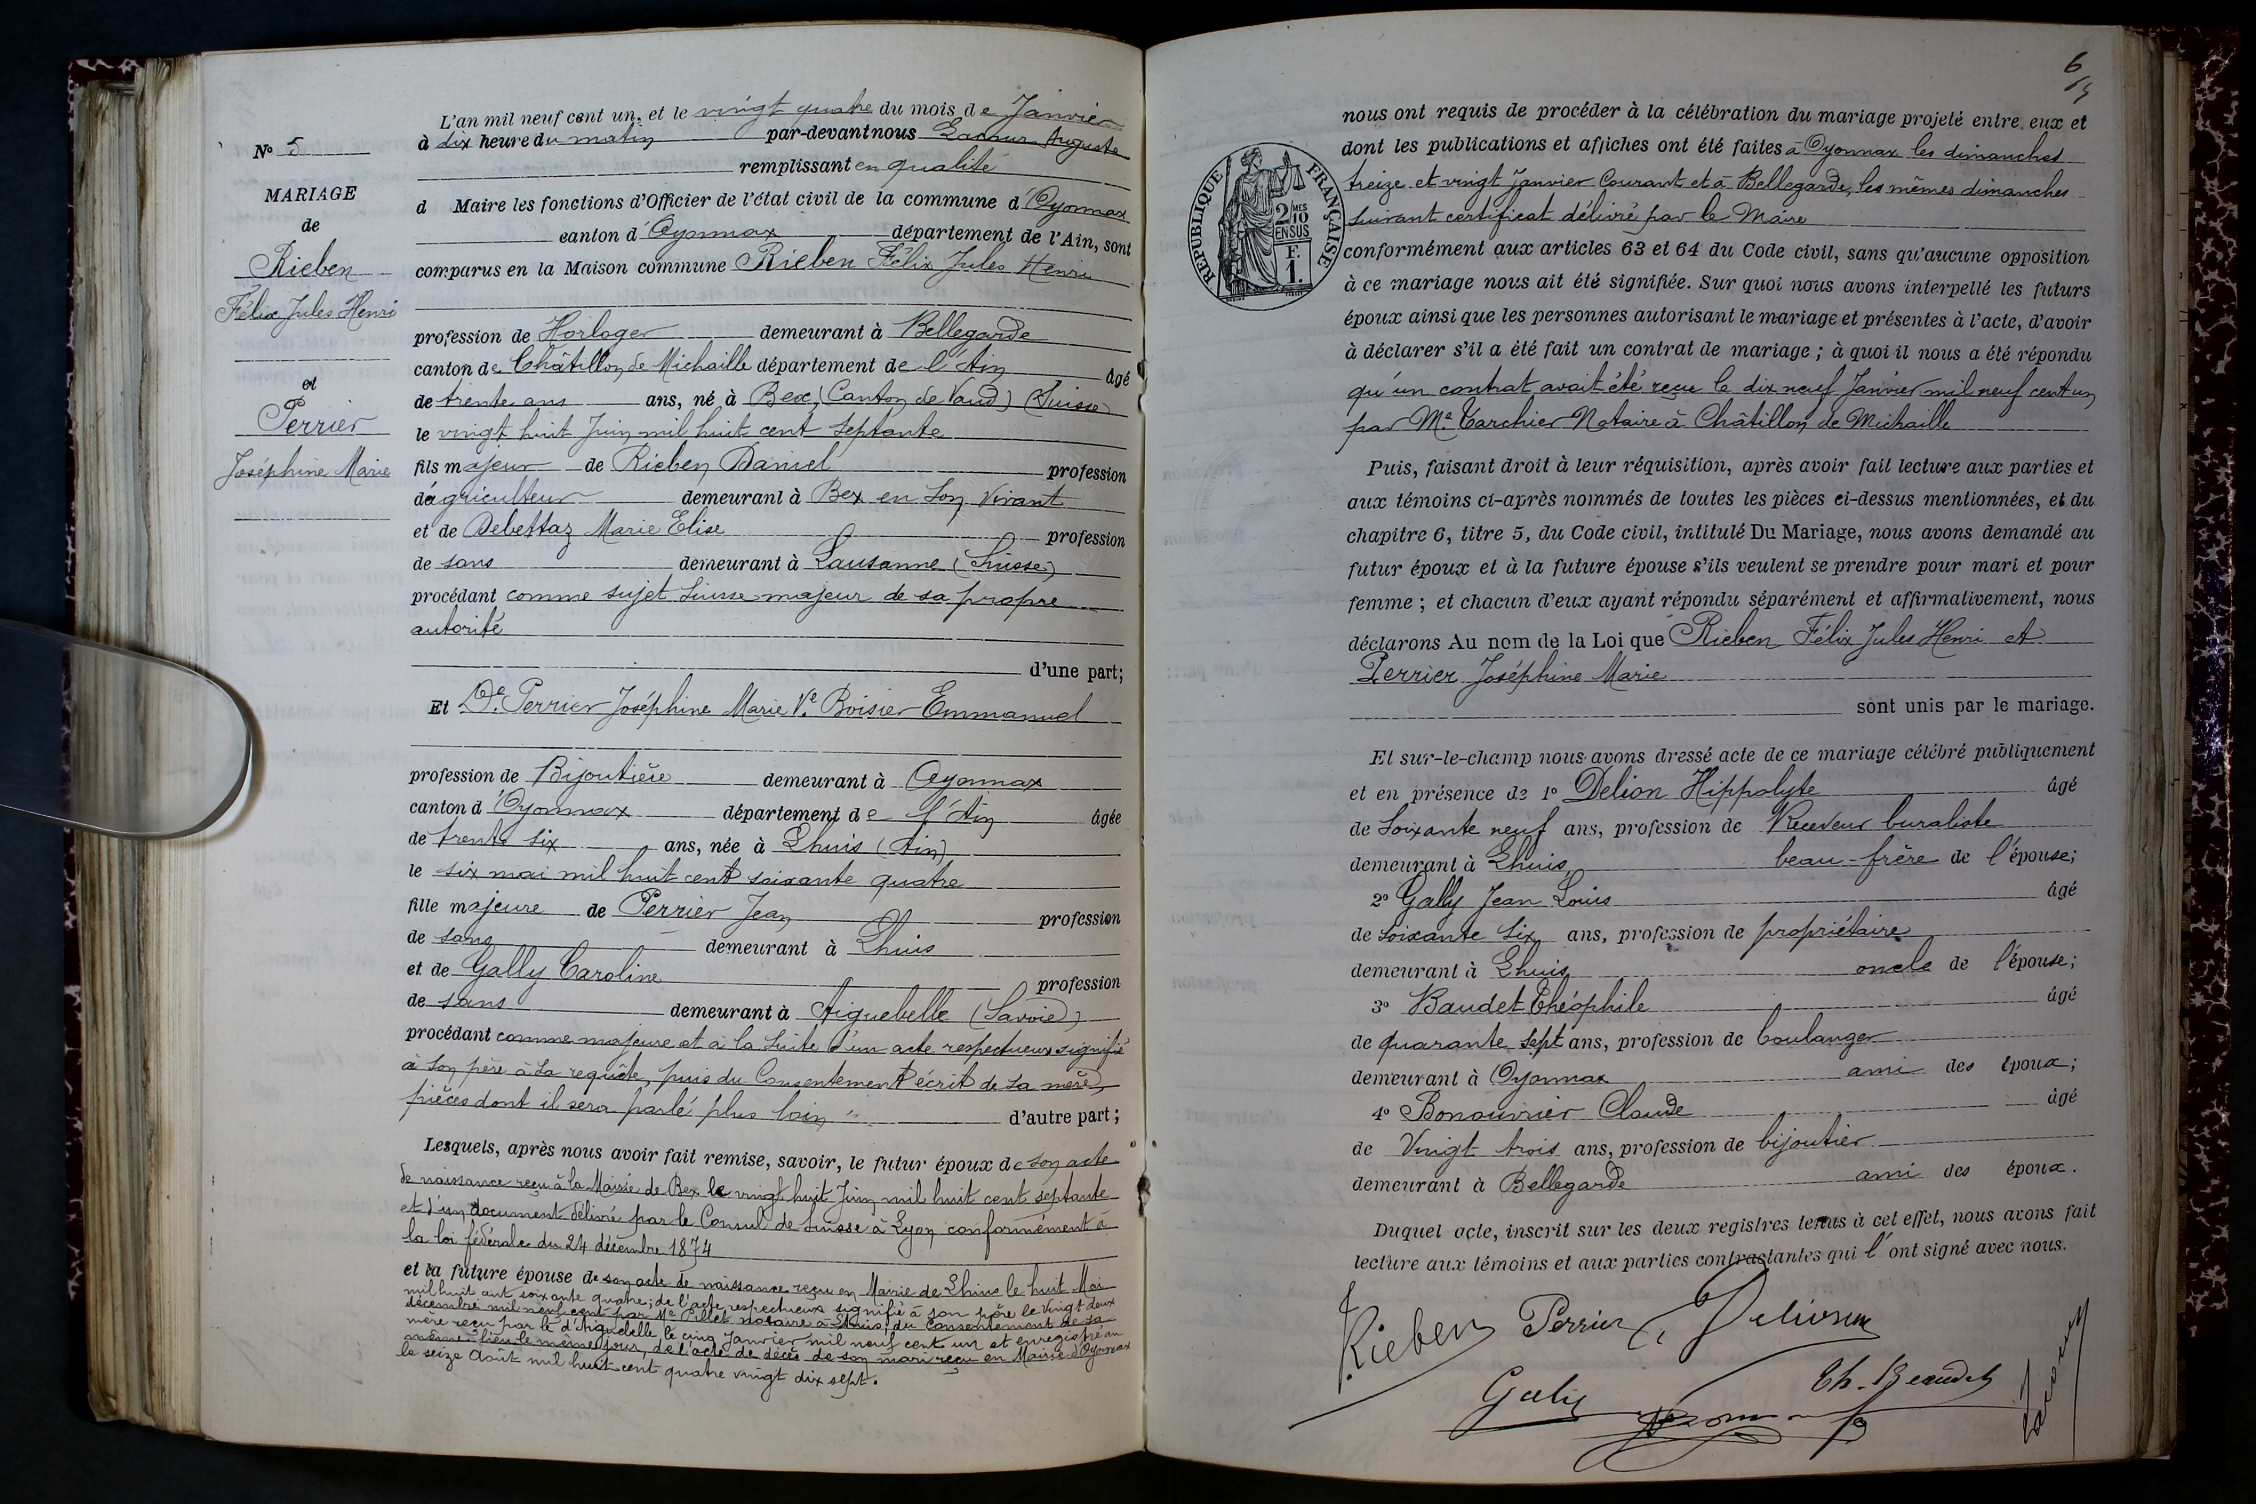 N° 5
MARIAGE
de
Rieben
Félix Jules Henri
et
Perrier
Joséphine Marie
L'an mil neuf cent un, et le vingt quatre du mois de Janvier
à dix heure du matin par-devant nous Lacour Auguste
remplissant en qualité
d Maire les fonctions d'Officier de l'état civil de la commune d'Oyonnax
canton d'Oyonnax département de l'Ain, sont
comparus en la Maison commune Rieben Félix Jules Henri
profession de Horloger demeurant à Bellegarde
canton de Châtillon de Michaille département de l'Ain âgé
de trente ans ans, né à Bex, (Canton de Vaud) (Suisse)
le vingt huit Juin mil huit cent septante
fils majeur de Rieben Daniel profession
d'agriculteur demeurant à Bex en son vivant
et de Debettaz Marie Elise profession
de sans demeurant à Lausanne (Suisse)
procédant comme sujet Suisse majeur de sa propre
autorité
d'une part;
Et De. Perrier Joséphine Marie Ve. Boisier Emmanuel
profession de Bijoutière demeurant à Oyonnax
canton d'Oyonnax département de l'Ain âgée
de trente six ans, née à Lhuis (Ain)
le six mai mil huit cent soixante quatre
fille majeure de Perrier Jean profession
de sans demeurant à Lhuis
et de Gally Caroline profession
de sans demeurant à Aiguebelle (Savoie)
procédant comme majeure et à la suite d'un acte respectueux signifié
à son père à sa requête, puis du Consentement écrit de sa mère,
pièces dont il sera parlé plus loin d'autre part;
Lesquels, après nous avoir fait remise, savoir, le futur époux de son acte
de naissance reçu à la Mairie de Bex le vingt huit Juin mil huit cent septante
et d'un document délivré par le Consul de Suisse à Lyon conformément à
la loi fédérale du 24 décembre 1874
et la future épouse de son acte de naissance reçu en Mairie de Lhuis le huit Mai
mil huit cent soixante quatre; de l'acte respectueux signifié à son père le vingt deux
décembre mil neuf cent par Me Pillet notaire à Lhuis; du consentement de sa
mère reçu par le d'Aiguebelle, le cinq Janvier mil neuf cent un et enregistré au
même lieu le même jour, de l'acte de décès de son mari reçu en Mairie d'Oyonnax
le seize Août mil huit cent quatre vingt dix sept.
6
RÉPUBLIQUE FRANÇAISE
2/10 MES
EN SUS
F.
1.
nous ont requis de procéder à la célébration du mariage projeté entre eux et
dont les publications et affiches ont été faites à Oyonnax les dimanches
treize et vingt Janvier Courant et à Bellegarde, les mêmes dimanches
suivant certificat délivré par le Maire
conformément aux articles 63 et 64 du Code civil, sans qu'aucune opposition
à ce mariage nous ait été signifiée. Sur quoi nous avons interpellé les futurs
époux ainsi que les personnes autorisant le mariage et présentes à l'acte, d'avoir
à déclarer s'il a été fait un contrat de mariage; à quoi il nous a été répondu
qu'un contrat avait été reçu le dix neuf Janvier mil neuf cent un
par Me. Tarchier Notaire à Châtillon de Michaille
Puis, faisant droit à leur réquisition, après avoir fait lecture aux parties et
aux témoins ci-après nommés de toutes les pièces ci-dessus mentionnées, et du
chapitre 6, titre 5, du Code civil, intitulé Du Mariage, nous avons demandé au
futur époux et à la future épouse s'ils veulent se prendre pour mari et pour
femme; et chacun d'eux ayant répondu séparément et affirmativement, nous
déclarons Au nom de la Loi que Rieben Félix Jules Henri et
Perrier Joséphine Marie
sont unis par le mariage.
Et sur-le-champ nous avons dressé acte de ce mariage célébré publiquement
et en présence de 1° Delion Hippolyte âgé
de soixante neuf ans, profession de Receveur buraliste
demeurant à Lhuis, beau-frère de l'épouse;
2° Gally Jean Louis âgé
de soixante six ans, profession de propriétaire
demeurant à Lhuis oncle de l'épouse;
3° Baudet Théophile âgé
de quarante sept ans, profession de boulanger
demeurant à Oyonnax ami des époux;
4° Bonouvrier Claude âgé
de Vingt trois ans, profession de bijoutier
demeurant à Bellegarde ami des époux.
Duquel acte, inscrit sur les deux registres tenus à cet effet, nous avons fait
lecture aux témoins et aux parties contractantes qui l'ont signé avec nous.
F. Rieben Perrier
Gally Th. Beaudet